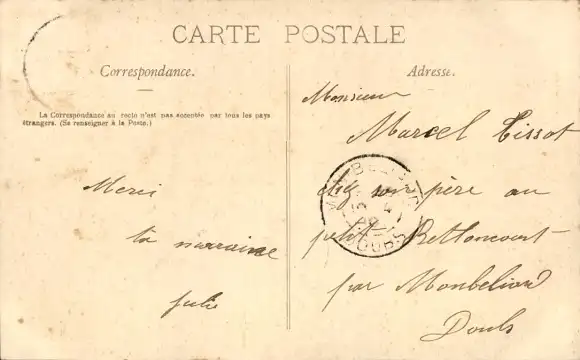 CARTE POSTALE
Correspondance.
La Correspondance au recto n'est pas acceptée par tous les pays
étrangers. (Se renseigner à la Poste.)
Merci
ta marraine
julie
Adresse.
Monsieur
Marcel Tissot
chez son père au
petit Bettoncourt
par Monbeliard
Doubs
DOUBS